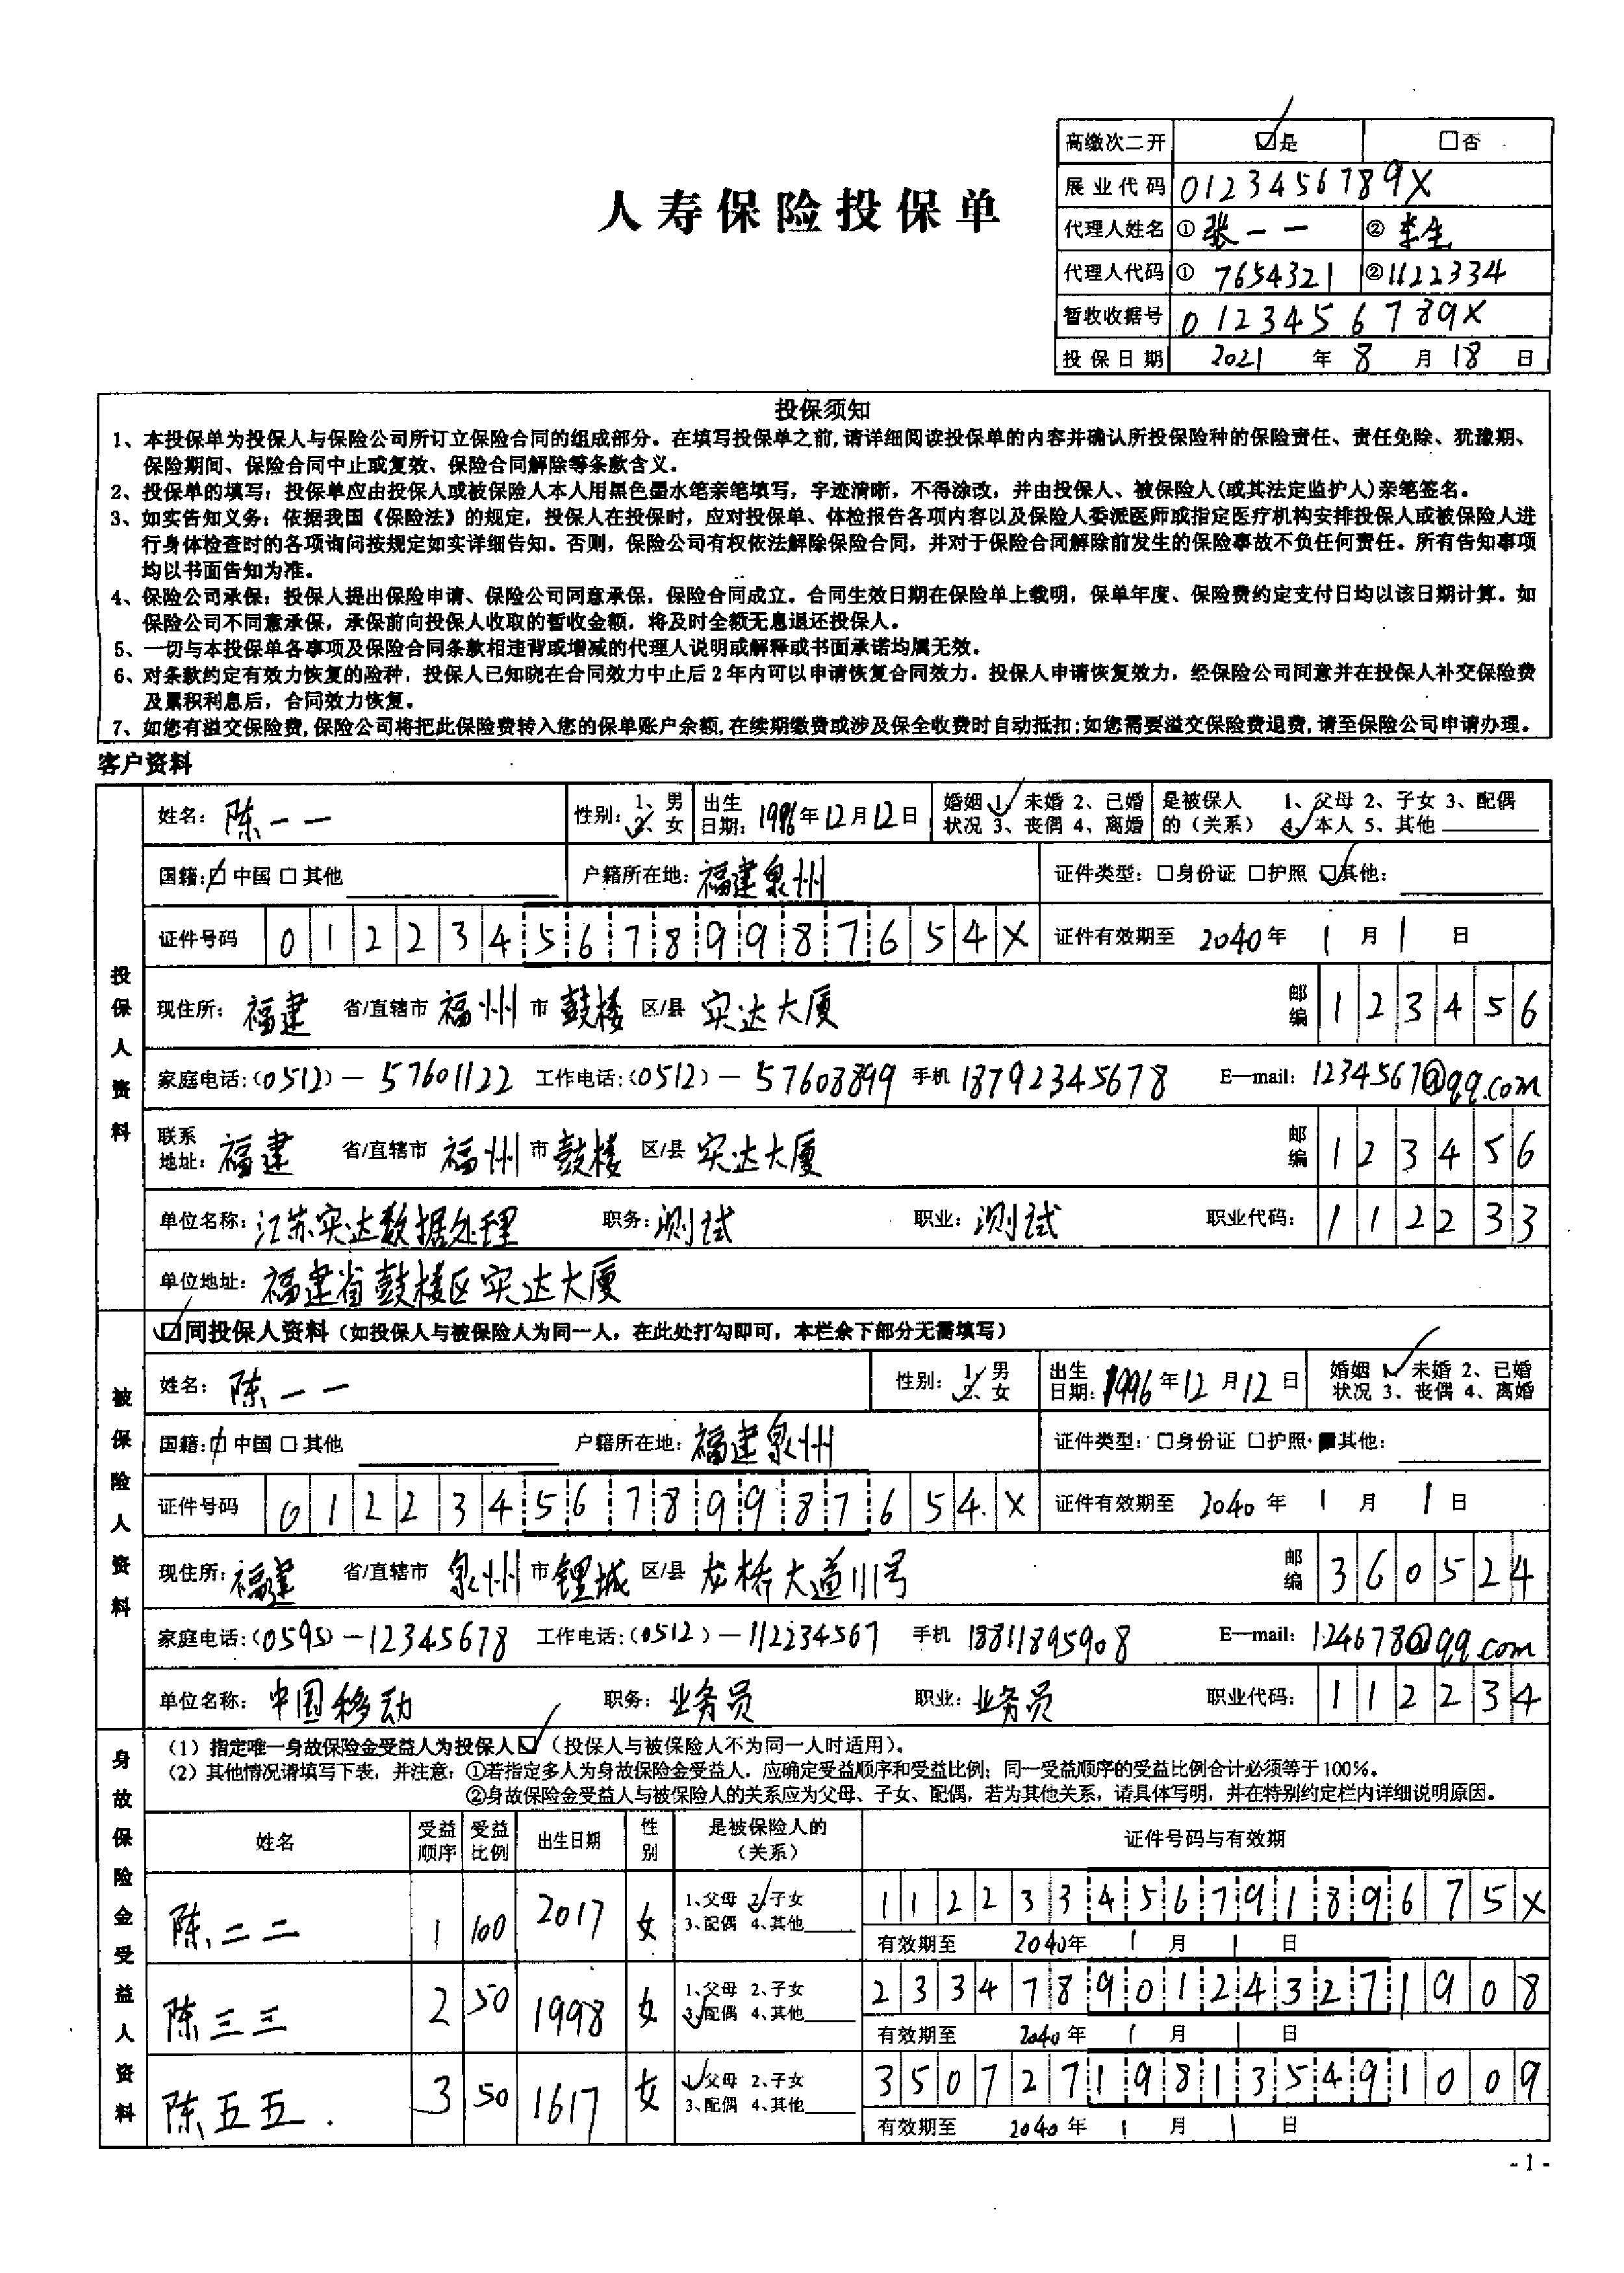 人寿保险投保单
高缴次二开 ☑是 □否
展业代码 0123456789X
代理人姓名 ① 张一一 ② 李生
代理人代码 ① 7654321 ② 1122334
暂收收据号 0123456789X
投保日期 2021 年 8 月 18 日
投保须知
1、本投保单为投保人与保险公司所订立保险合同的组成部分。在填写投保单之前,请详细阅读投保单的内容并确认所投保险种的保险责任、责任免除、犹豫期、
保险期间、保险合同中止或复效、保险合同解除等条款含义。
2、投保单的填写：投保单应由投保人或被保险人本人用黑色墨水笔亲笔填写，字迹清晰，不得涂改，并由投保人、被保险人(或其法定监护人)亲笔签名。
3、如实告知义务：依据我国《保险法》的规定，投保人在投保时，应对投保单、体检报告各项内容以及保险人委派医师或指定医疗机构安排投保人或被保险人进
行身体检查时的各项询问按规定如实详细告知。否则，保险公司有权依法解除保险合同，并对于保险合同解除前发生的保险事故不负任何责任。所有告知事项
均以书面告知为准。
4、保险公司承保：投保人提出保险申请、保险公司同意承保，保险合同成立。合同生效日期在保险单上载明，保单年度、保险费约定支付日均以该日期计算。如
保险公司不同意承保，承保前向投保人收取的暂收金额，将及时全额无息退还投保人。
5、一切与本投保单各事项及保险合同条款相违背或增减的代理人说明或解释或书面承诺均属无效。
6、对条款约定有效力恢复的险种，投保人已知晓在合同效力中止后2年内可以申请恢复合同效力。投保人申请恢复效力，经保险公司同意并在投保人补交保险费
及累积利息后，合同效力恢复。
7、如您有溢交保险费,保险公司将把此保险费转入您的保单账户余额,在续期缴费或涉及保全收费时自动抵扣;如您需要溢交保险费退费,请至保险公司申请办理。
客户资料
投保人资料
姓名：陈一一 性别：1、男 2、女 出生日期：1996年12月12日 婚姻状况 1、未婚 2、已婚 3、丧偶 4、离婚 是被保人的（关系） 1、父母 2、子女 3、配偶 4、本人 5、其他
国籍：☑中国 □其他 户籍所在地：福建泉州 证件类型：□身份证 □护照 ☑其他：
证件号码 01223456789987654X 证件有效期至 2040年 1 月 1 日
现住所：福建 省/直辖市 福州 市 鼓楼 区/县 实达大厦 邮编 123456
家庭电话:(0512)— 57601122 工作电话:(0512)— 57608899 手机 18792345678 E—mail：1234567@qq.com
联系地址：福建 省/直辖市 福州 市 鼓楼 区/县 实达大厦 邮编 123456
单位名称：江苏实达数据处理 职务：测试 职业：测试 职业代码：112233
单位地址：福建省鼓楼区实达大厦
被保险人资料
☑同投保人资料（如投保人与被保险人为同一人，在此处打勾即可，本栏余下部分无需填写）
姓名：陈一一 性别：1、男 2、女 出生日期：1996年12月12日 婚姻状况 1、未婚 2、已婚 3、丧偶 4、离婚
国籍：☑中国 □其他 户籍所在地：福建泉州 证件类型：□身份证 □护照 ■其他：
证件号码 01223456789987654X 证件有效期至 2040年 1 月 1 日
现住所：福建 省/直辖市 泉州 市 鲤城 区/县 龙桥大道111号 邮编 360524
家庭电话:(0595)—12345678 工作电话:(0512)—112234567 手机 18811895908 E—mail：1246786@qq.com
单位名称：中国移动 职务：业务员 职业：业务员 职业代码：112234
身故保险金受益人资料
（1）指定唯一身故保险金受益人为投保人☑（投保人与被保险人不为同一人时适用）。
（2）其他情况请填写下表，并注意：①若指定多人为身故保险金受益人，应确定受益顺序和受益比例；同一受益顺序的受益比例合计必须等于100%。
②身故保险金受益人与被保险人的关系应为父母、子女、配偶，若为其他关系，请具体写明，并在特别约定栏内详细说明原因。
姓名 受益顺序 受益比例 出生日期 性别 是被保险人的（关系） 证件号码与有效期
陈二二 1 100 2017 女 1、父母 2、子女 3、配偶 4、其他 11223345679189675X
有效期至 2040年 1 月 1 日
陈三三 2 50 1998 女 1、父母 2、子女 3、配偶 4、其他 233478901243271908
有效期至 2040年 1 月 1 日
陈五五. 3 50 1617 女 1、父母 2、子女 3、配偶 4、其他 350727198135491009
有效期至 2040年 1 月 1 日
- 1 -